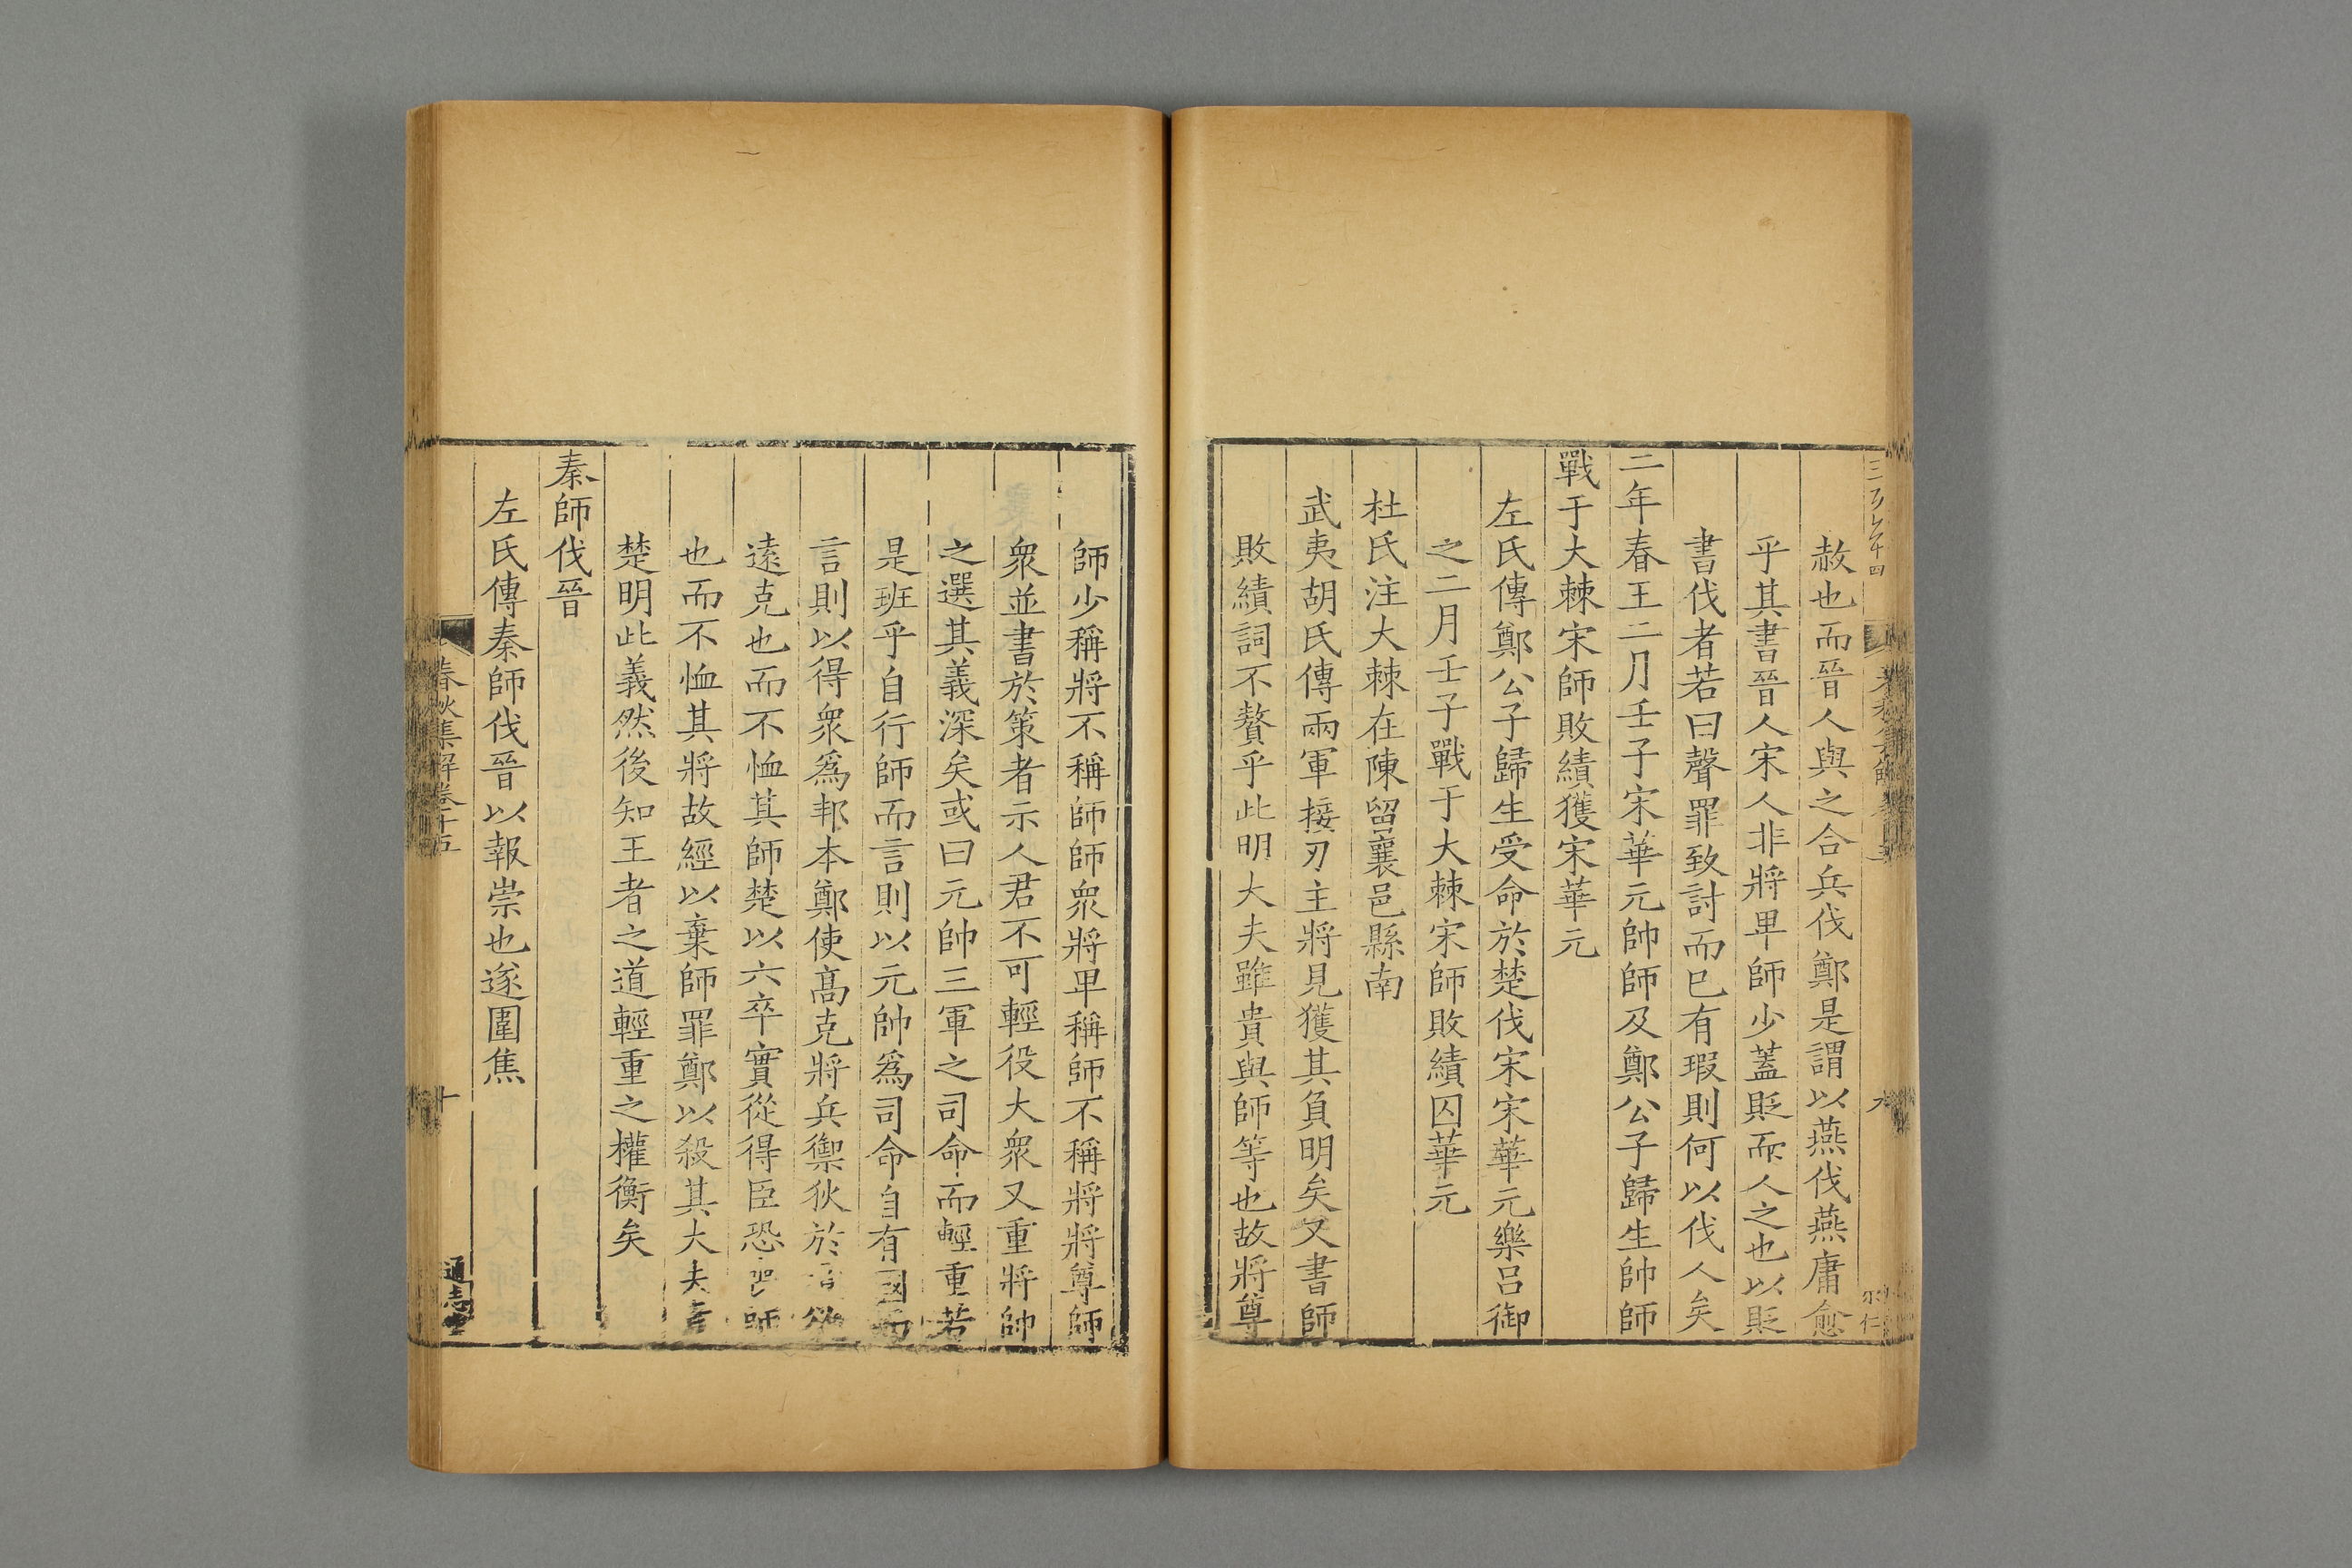 赦也而晉人與之合兵伐鄭是謂以燕伐燕庸愈
乎其書晉人宋人非將卑師少蓋貶而人之也以貶
書伐者若曰聲罪致討而已有瑕則何以伐人矣
二年春王二月壬子宋華元帥師及鄭公子歸生帥師
戰于大棘宋師敗績獲宋華元
左氏傳鄭公子歸生受命於楚伐宋宋華元樂呂御
之二月壬子戰于大棘宋師敗績囚華元
杜氏注大棘在陳留襄邑縣南
武夷胡氏傳兩軍接刃主將見獲其負明矣又書師
敗績詞不贅乎此明大夫雖貴與師等也故將尊
師少稱將不稱師師衆將卑稱師不稱將將尊師
衆並書於策者示人君不可輕役大衆又重將帥
之選其義深矣或曰元帥三軍之司命而輕重若
是班乎自行師而言則以元帥爲司命自有國而
言則以得衆爲邦本鄭使髙克將兵禦狄於
遠克也而不恤其師楚以六卒實從得臣恐師
也而不恤其將故經以棄師罪鄭以殺其大夫
楚明此義然後知王者之道輕重之權衡矣
秦師伐晉
左氏傳秦師伐晉以報崇也遂圍焦
春秋集解卷十五
十
通志堂